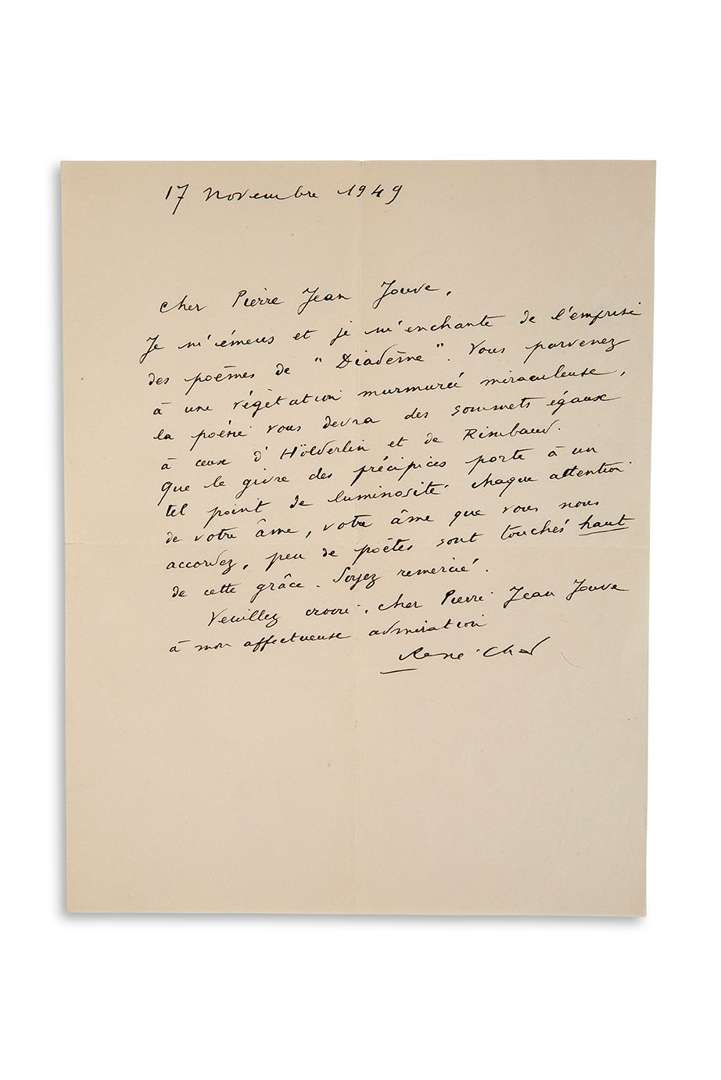 17 Novembre 1949
Cher Pierre Jean Jouve,
Je m'émeus et je m'enchante de l'emprise
des poèmes de "Diadème". Vous parvenez
à une végétation murmurée miraculeuse,
la poésie vous devra des sommets égaux
à ceux d'Hölderlin et de Rimbaud.
Que le givre des précipices porte à un
tel point de luminosité chaque attention
de votre âme, votre âme que vous nous
accordez, peu de poëtes sont touchés haut
de cette grâce. Soyez remercié.
Veuillez croire, cher Pierre Jean Jouve
à mon affectueuse admiration
René Char